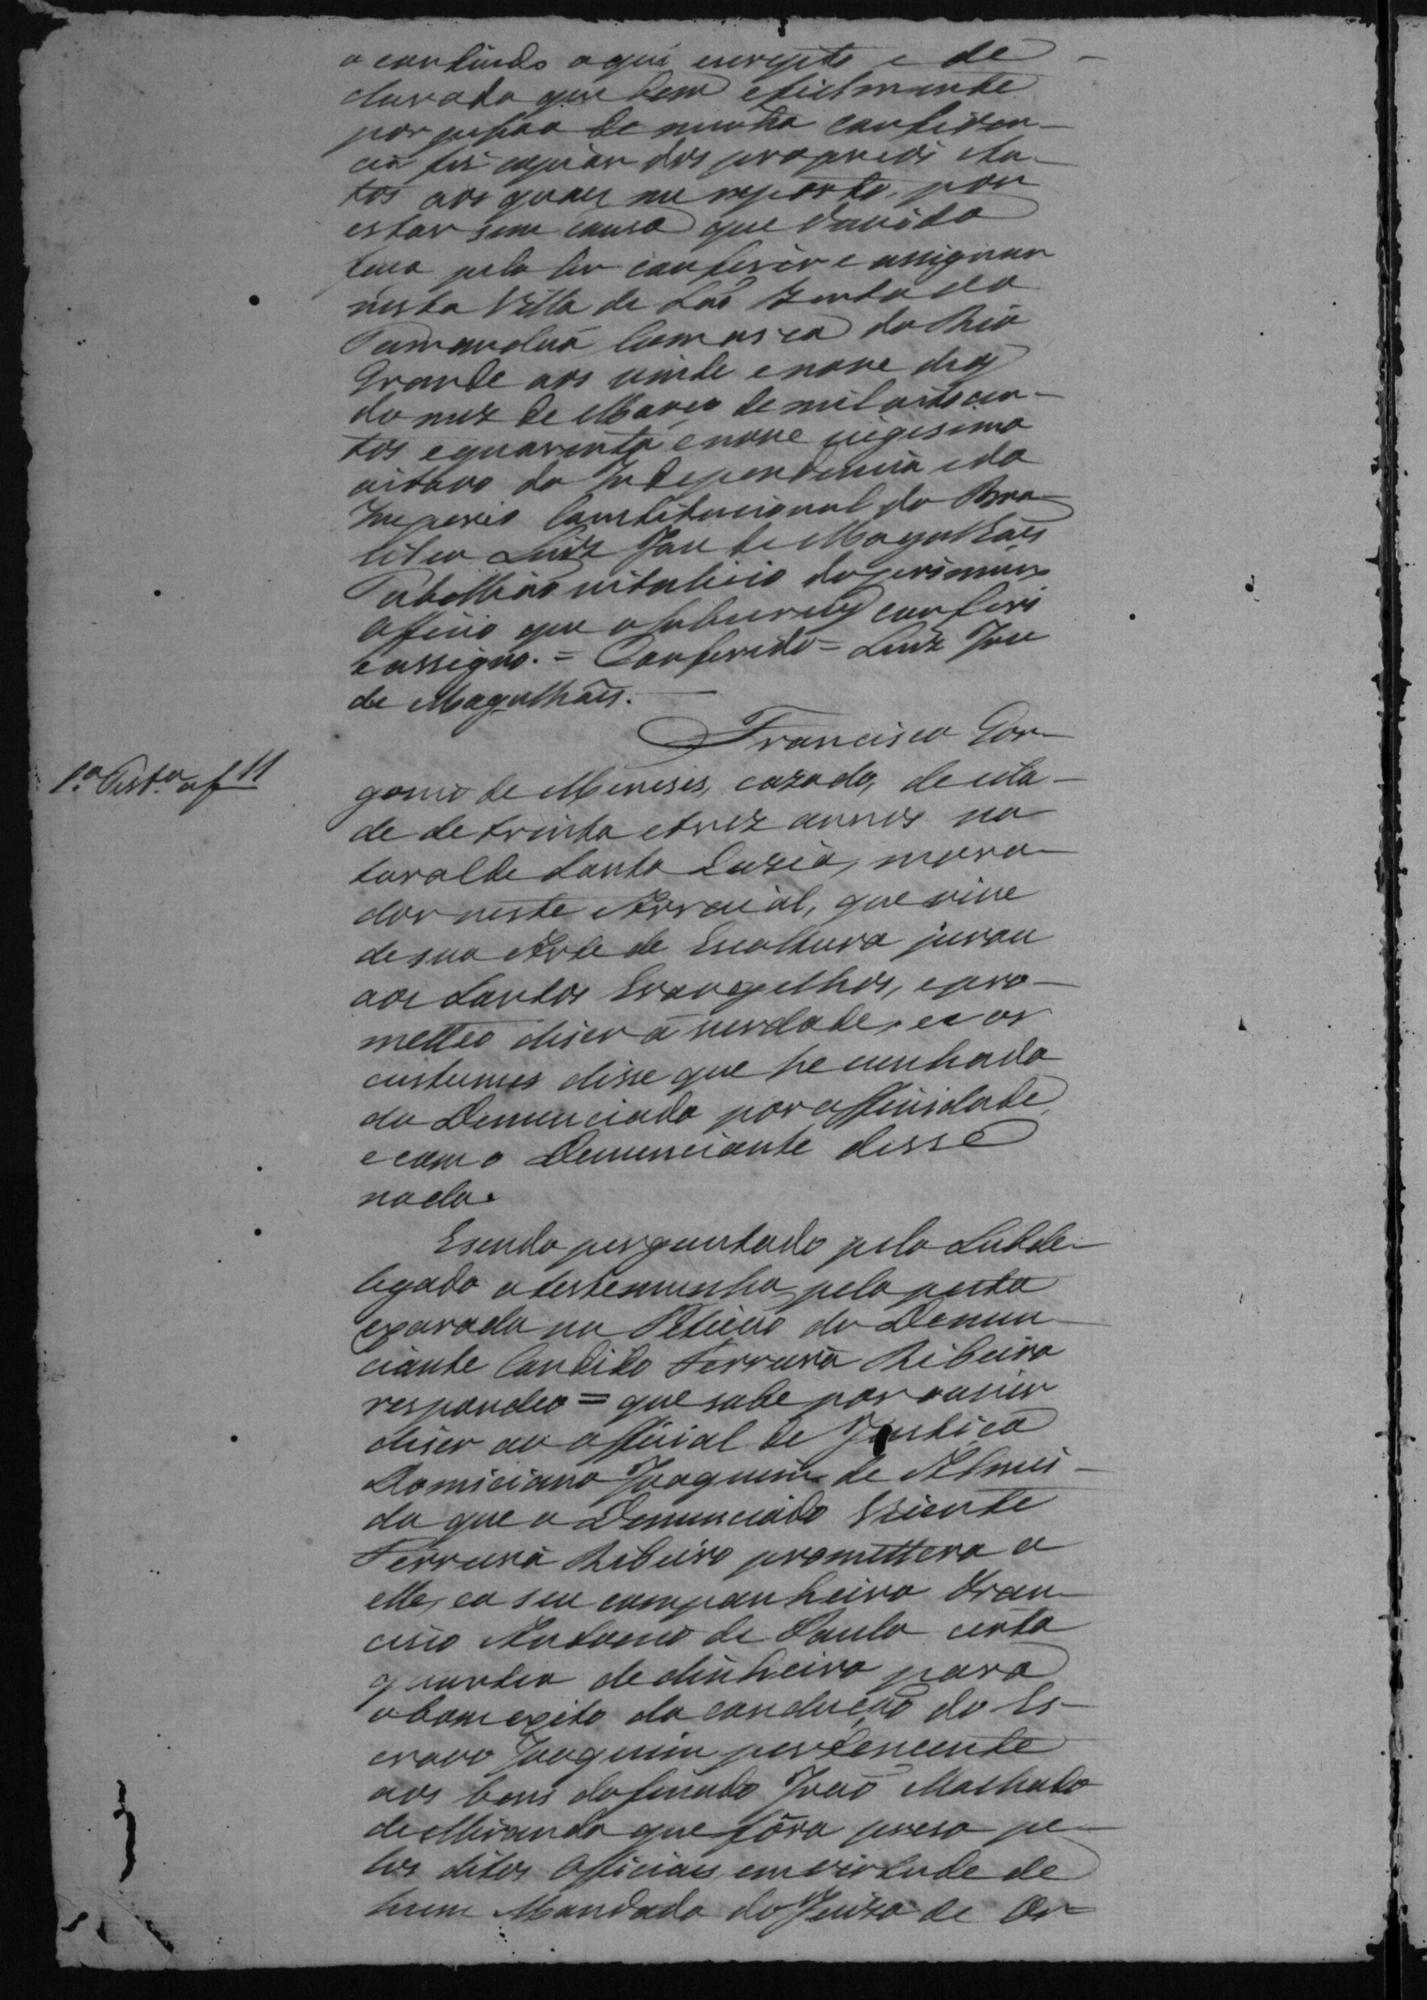 o contindo aqui escripto e de
clarado que bem efielmente
por pessoa de minha confiden-
cia fis copiar dos proprios Au-
tos aos quaes me reporto, por
estar sem causa que duvida
faça pelo ler conferir e assignar
nesta Villa de Saõ Bento do
Tamanduá Comarca do Rio
Grande aos vinte enove dias
do mez de Março de mil oitocen-
tos equarenta enove vigesimo
oitavo da Independencia edo
Imperio Constitucional do Bra-
sil eu Luiz Joze de Magalhães
Tabelliaõ vitalicio do primeiro
Officio que o subscrevy conferi
e assigno. = Conferido = Luiz Joze
de Magalhães.
Francisco Gor-
1.ª Test.ª af 11
gonio de Meneses, cazado, de ida-
de de trinta etrez annos na-
tural de Santa Luzia, mora-
dor neste Arraial, que vive
de sua Arte de Escultura jurou
aos Santos Evangelhos, epro-
metteo diser a verdade, e aos
custumes disse que he cunhado
do Denunciado por affinidade,
e como Denunciante disse
nada.
Esendo perguntado pelo Subde-
legado a testemunha pelo
exarado na Petiçaõ do Denun-
ciante Candido Ferreira Ribeiro
respondeo = que sabe por ouvir
diser ao official de Justiça
Domiciano Joaquim de Almei-
da que o Denunciado Vicente
Ferreira Ribeiro promettera a
elle, ea seu companheiro Fran-
cisco Antonio de Paula certa
quantia de dinheiro para
o bom exito da conducçaõ do Es-
cravo Joaquim pertencente
aos bens do finado Joaõ Machado
de Miranda que fôra preso pe-
los ditos Officiaes em virtude de
hum Mandado do Juizo de Or-